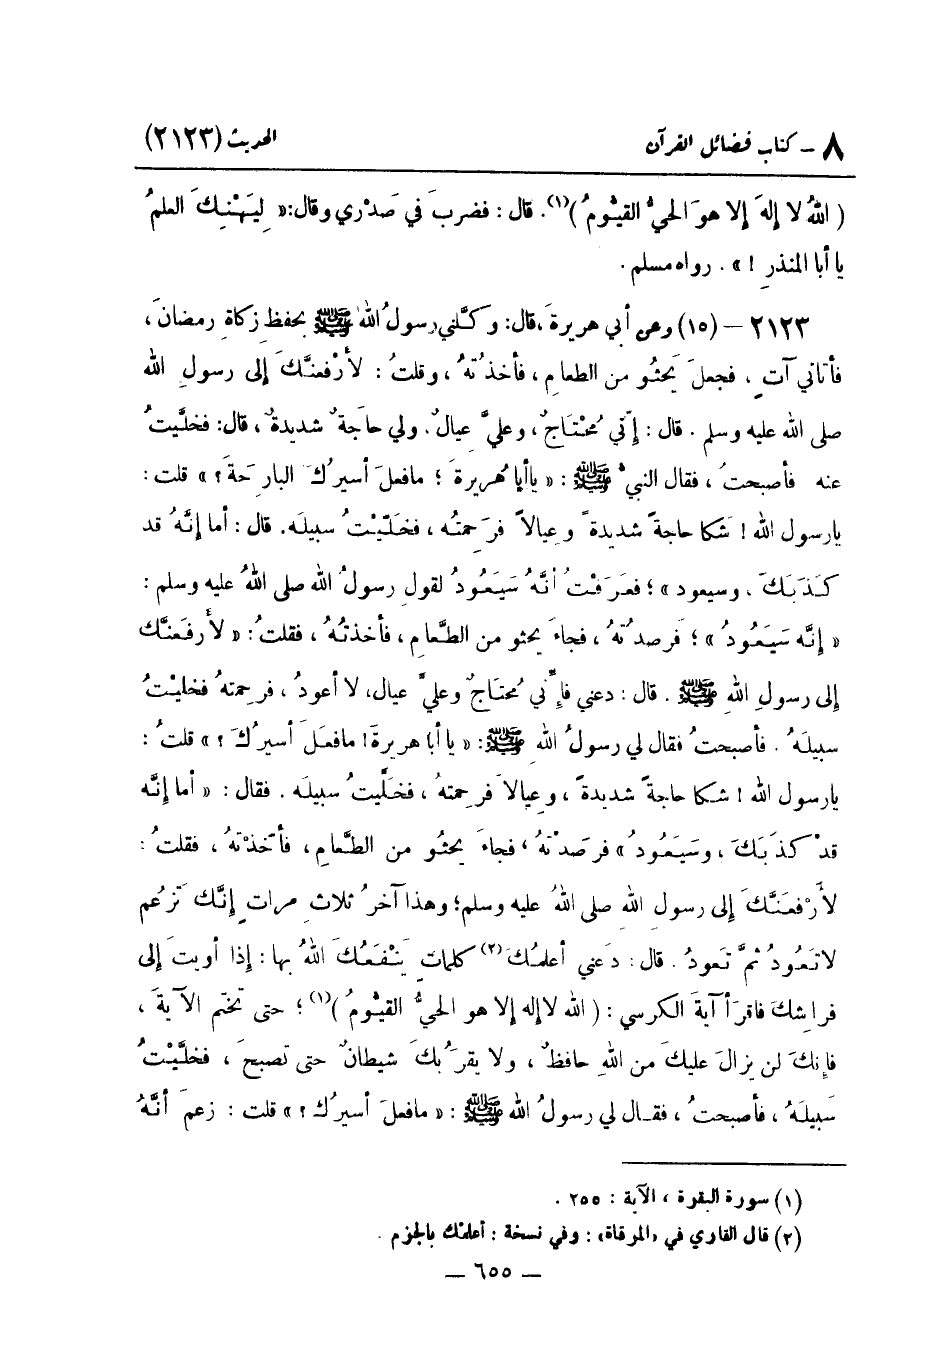 ٨ - كتاب فضائل القرآن الحديث (٢١٢٣)
( اللهُ لا إلهَ إلا هوَ الحيُّ القيُّومُ )(١). قال : فضربَ في صَدْري وقال:« لِيَهْنِكَ العلمُ
يا أبا المنذرِ ! » . رواه مسلم .
٢١٢٣ - (١٥) وعن أبي هريرةَ ،قال: وكَّلني رسولُ اللهِ ﷺ بحفظِ زكاةِ رمضانَ ،
فأتاني آتٍ ، فجعلَ يَحثُو من الطعامِ ، فأخذتُهُ ، وقلتُ : لأرْفعنَّكَ إلى رسولِ الله
صلى الله عليه وسلم . قال : إنّي مُحْتَاجٌ ، وعليَّ عيالٌ. ولي حاجَةٌ شديدةٌ ، قال: فخلَّيتُ
عنه فأصبحتُ ، فقال النبيُّ ﷺ : « ياأبا هُريرةَ ؛ مافعلَ أسيرُكَ البارحَةَ ؟ » قلت :
يارسول الله ! شكا حاجةً شديدةً وعيالاً فرَحمتُه ، فخلَّيْتُ سبيلَه. قال : أما إنَّهُ قد
كَذَبَكَ ، وسيعود » ؛ فعَرَفْتُ أنَّهُ سَيَعُودُ لقولِ رسولِ الله صلى اللهُ عليه وسلم :
« إنَّه سَيَعُودُ » ؛ فَرصدْتُهُ ، فجاءَ يحثو من الطَّعامِ ، فأخذتُهُ ، فقلتُ: « لأرفَعنَّكَ
إلى رسولِ اللهِ ﷺ . قال : دعني فإنّي مُحتاجٌ وعليَّ عيال، لا أعودُ ، فرحمتهُ فخليْتُ
سبيلَهُ . فأصبحتُ فقال لي رسولُ اللهِ ﷺ: « يا أبا هريرةَ ! مافعَلَ أسيرُكَ ؟ » قلتُ :
يارسول الله ! شكا حاجةً شديدةً ، وعيالاً فرحمتهُ ، فخلَّيتُ سبيلَه . فقال : « أما إنَّه
قدْ كذَبَكَ ، وسَيَعُودُ » فرصَدْتهُ ، فجاءَ يحثُو من الطَّعامِ ، فأخذْتهُ ، فقلتُ :
لأرْفعَنَّكَ إلى رسولِ الله صلى اللهُ عليه وسلم؛ وهذا آخرُ ثلاثِ مراتٍ إنَّكَ تَزعُم
لاتعُودُ ثمَّ تَعودُ . قال : دَعني أعلمُكَ(٢) كلماتٍ يَنْفَعُكَ اللهُ بها : إذا أويتَ إلى
فراشِكَ فاقرَأ آيةَ الكرسي : ( الله لاإله إلا هو الحيُّ القيُّومُ )(١) ؛ حتى تختَم الآيةَ ،
فإنكَ لن يزالَ عليكَ من اللهِ حافظٌ ، ولا يقرَبُكَ شيطانٌ حتى تصبحَ ، فخلَّيْتُ
سَبيلَهُ ، فأصبحتُ ، فقال لي رسولُ الله ﷺ : « مافعلَ أسيرُك ؟ » قلت : زعمَ أنَّهُ
(١) سورة البقرة ، الآية : ٢٥٥ .
(٢) قال القاري في «المرقاة» : وفي نسخة : أعلمْك بالجزم .
– ٦٥٥ –